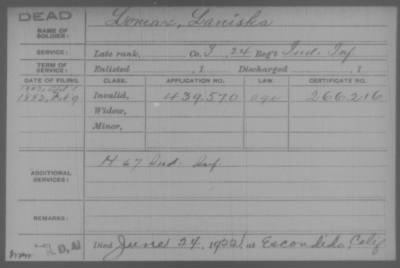 DEAD
NAME OF SOLDIER:
Lomax, Laniska
SERVICE:
Late rank, Co. I, 24 Reg't Ind. Inf.
TERM OF SERVICE:
Enlisted , 1 Discharged , 1
DATE OF FILING. CLASS. APPLICATION NO. LAW. CERTIFICATE NO.
1882, Feb 9 Invalid, 439.570 age 266.216
Widow,
Minor,
ADDITIONAL SERVICES:
H 67 Ind. Inf.
REMARKS:
Died June 24, 1922, at Escondido, Calif